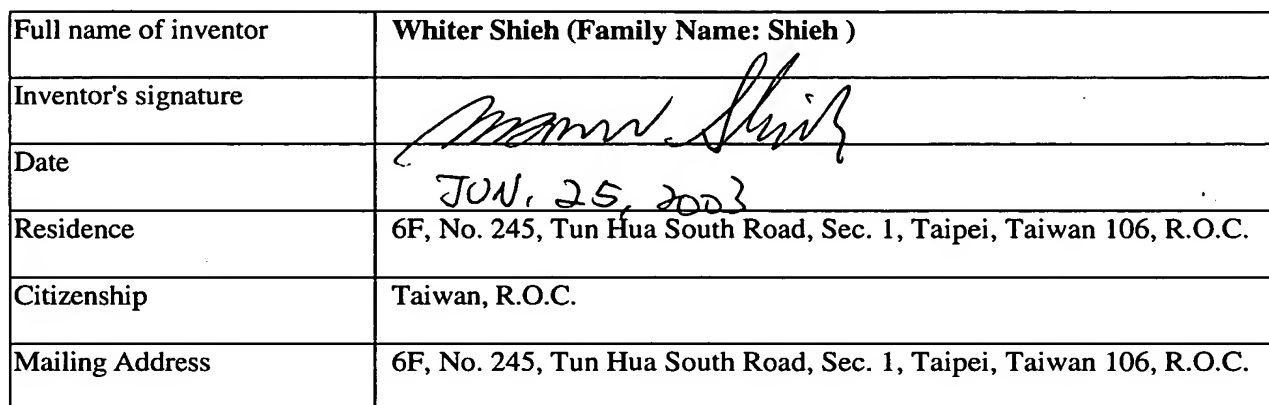 Full name of inventor Whiter Shieh (Family Name: Shieh )
Inventor's signature Shieh
Date JUN. 25, 2003
Residence 6F, No. 245, Tun Hua South Road, Sec. 1, Taipei, Taiwan 106, R.O.C.
Citizenship Taiwan, R.O.C.
Mailing Address 6F, No. 245, Tun Hua South Road, Sec. 1, Taipei, Taiwan 106, R.O.C.